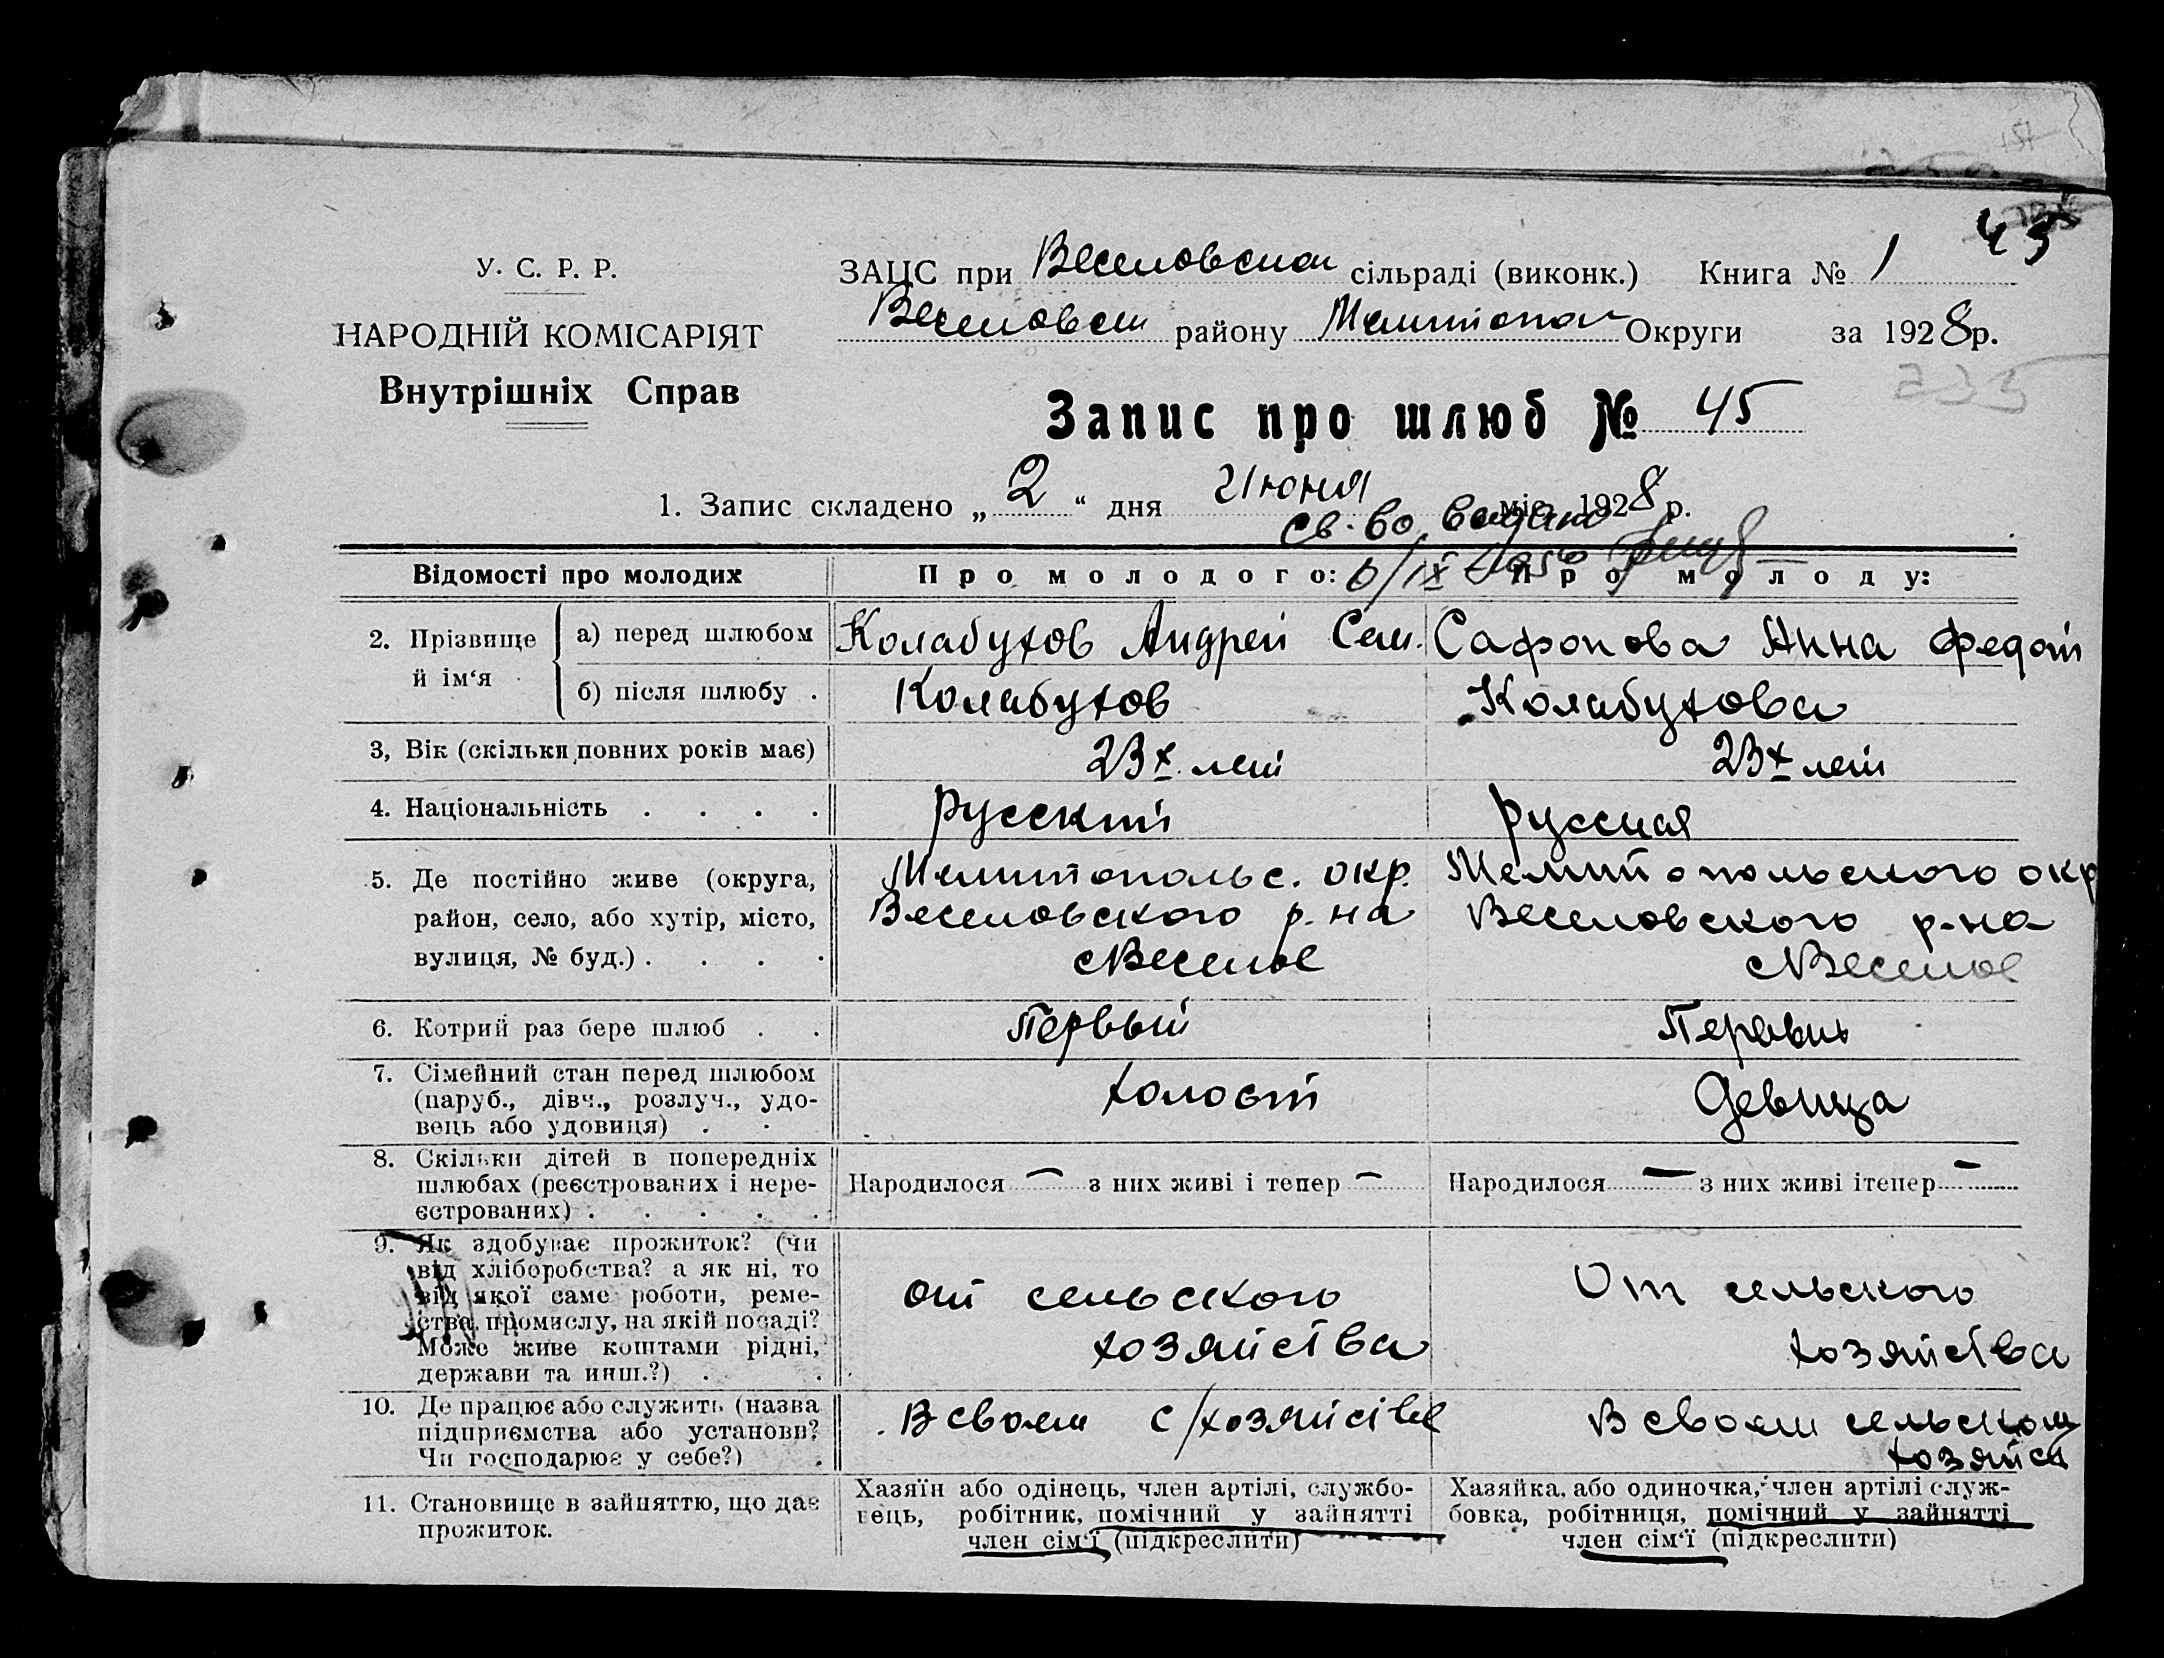 43
У. С. Р. Р.
НАРОДНІЙ КОМІСАРІЯТ
Внутрішніх Справ
ЗАЦС при Веселовском сільраді (виконк.) Книга № 1
Веселовск району Мелитопол Округи за 1928 р.
235
Запис про шлюб № 45
1. Запис складено „ 2 “ дня Июня міс. 1928 р.
Св-во выдано
6/IX
Відомості про молодих
Про молодого:
Про молоду:
2. Прізвище й ім‘я
а) перед шлюбом
Колабухов Андрей Сем.
Сафонова Анна Федот
б) після шлюбу .
Колабухов
Колабухова
3, Вік (скільки повних років має)
23х лет
23х лет
4. Національність . . . .
русский
русская
5. Де постійно живе (округа,
район, село, або хутір, місто,
вулиця, № буд.) . . . .
Мелитопольс. окр.
Веселовского р-на
с Веселое
Мелитопольского окр
Веселовского р-на
с Веселое
6. Котрий раз бере шлюб . .
Первый
Первый
7. Сімейний стан перед шлюбом
(паруб., дівч., розлуч., удо-
вець або удовиця) . .
холост
Девица
8. Скільки дітей в попередніх
шлюбах (реєстрованих і нере-
єстрованих) . . . . .
Народилося — з них живі і тепер —
Народилося — з них живі ітепер —
9. Як здобуває прожиток? (чи
від хліборобства? а як ні, то
від якої саме роботи, реме-
ства, промислу, на якій посаді?
Може живе коштами рідні,
держави та инш.?) . .
от сельского
хозяйства
От сельского
хозяйства
10. Де працює або служить (назва
підприємства або установи?
Чи господарює у себе?) .
В своем с/хозяйстве
В своем сельском
хозяйст
11. Становище в зайняттю, що дає
прожиток.
Хазяїн або одінець, член артілі, службо-
вець, робітник, помічний у зайнятті
член сім‘ї (підкреслити)
Хазяйка, або одиночка, член артілі служ-
бовка, робітниця, помічний у зайнятті
член сім‘ї (підкреслити)